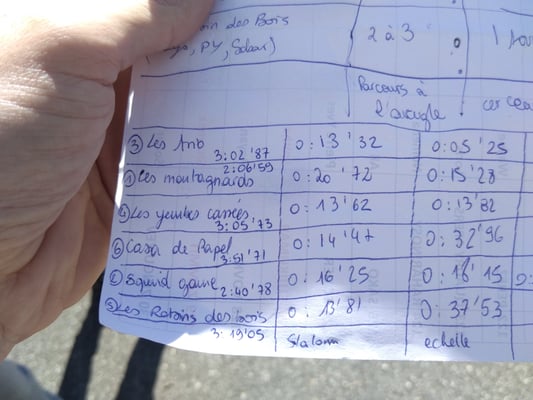 des Bois
, PY,
2 à 3
1
Parcours à
l'aveugle
③ Les
3:02'87
0:13'32
0:05'25
2:06'59
① Les montagnards
0:20'72
0:15'23
Les jambes cassées
3:05'73
0:13'62
0:13'82
⑥ Casa de Papel
3:51'71
0:14'47
0:32'96
② Squid game
2:40'78
0:16'25
0:18'15
⑤ Les Robins des bois
3:19'05
0:13'81
0:37'53
Slalom
echelle